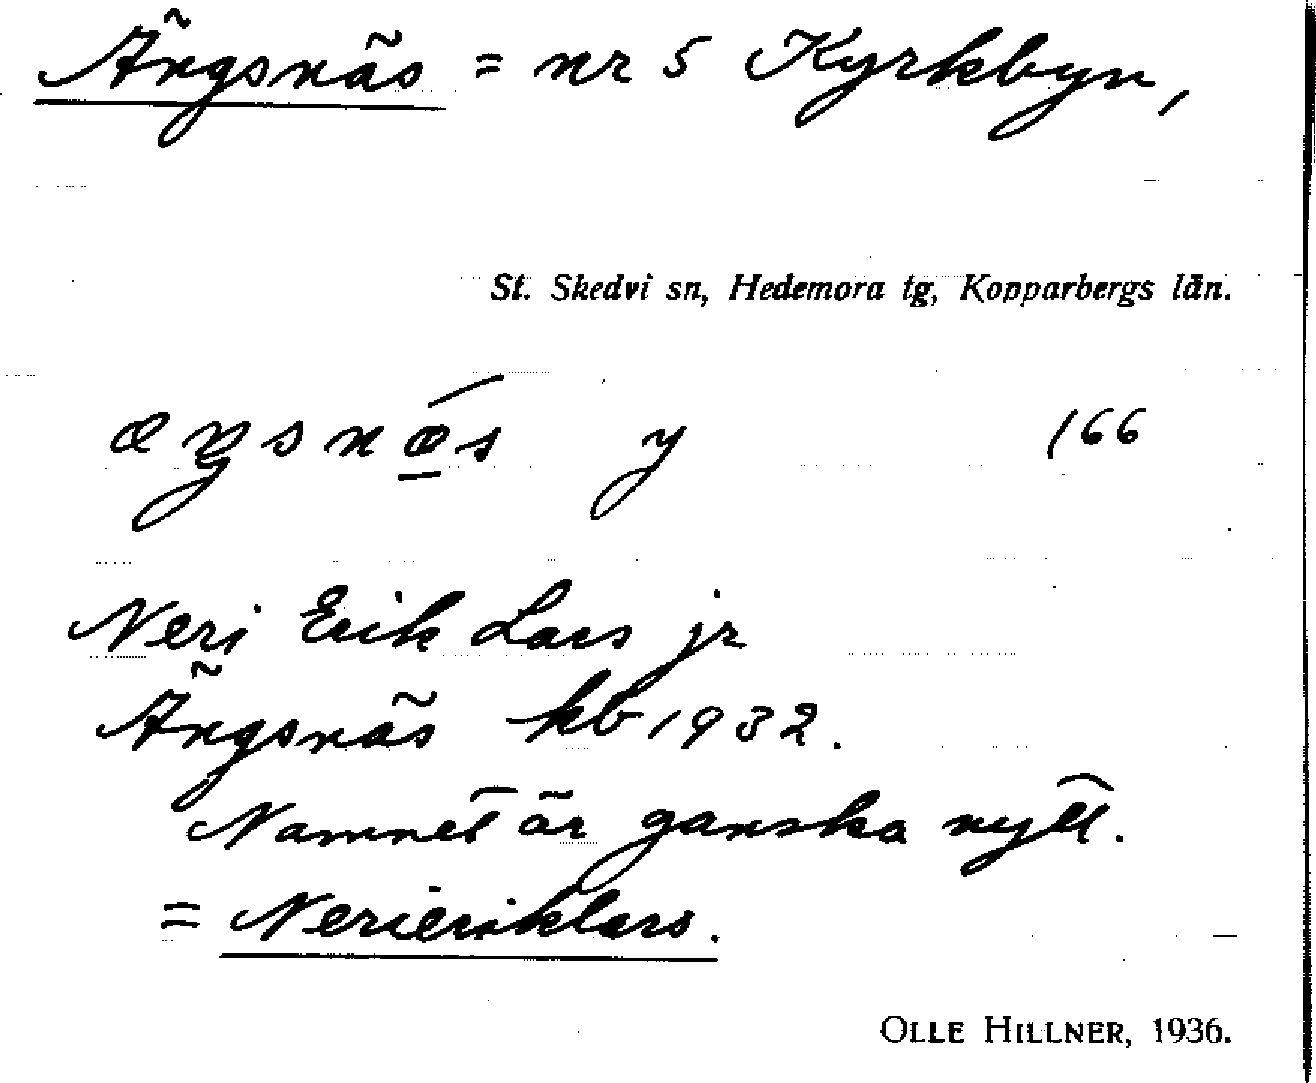 Ängsnäs = nr 5 Kyrkbyn,
St. Skedvi sn, Hedemora tg, Kopparbergs län.
æŋsnæ̲s y 166
Neri Erik Lars jr
Ängsnäs kb 1932.
Namnet är ganska nytt.
= Nerieriklars.
OLLE HILLNER, 1936.